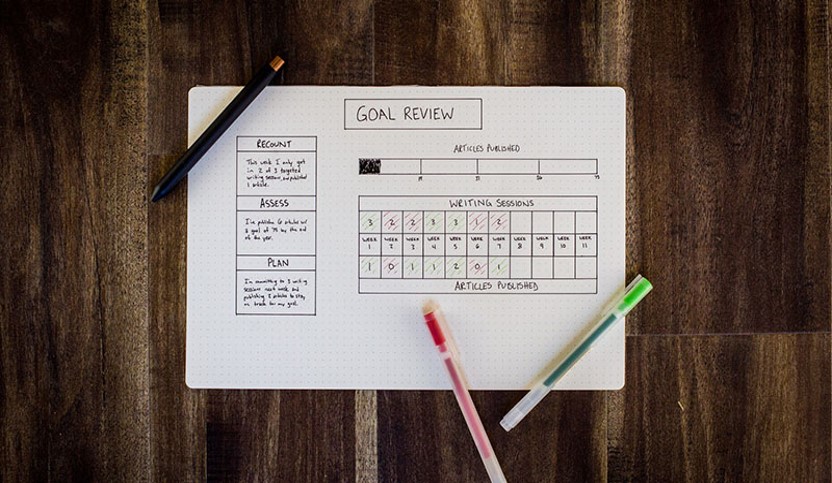 GOAL REVIEW
RECOUNT
This week I only got
in 2 of 3 targeted
writing sessions, and published
1 article.
ASSESS
I've published 6 articles w/
a goal of 75 by the end
of the year.
PLAN
I'm committing to 3 writing
sessions next week and
publishing 2 articles to stay
on track for my goal.
ARTICLES PUBLISHED
WRITING SESSIONS
3 2 2 3 3 1 2
WEEK WEEK WEEK WEEK WEEK WEEK WEEK WEEK WEEK WEEK WEEK
1 2 3 4 5 6 7 8 9 10 11
1 0 1 1 2 0 1
ARTICLES PUBLISHED